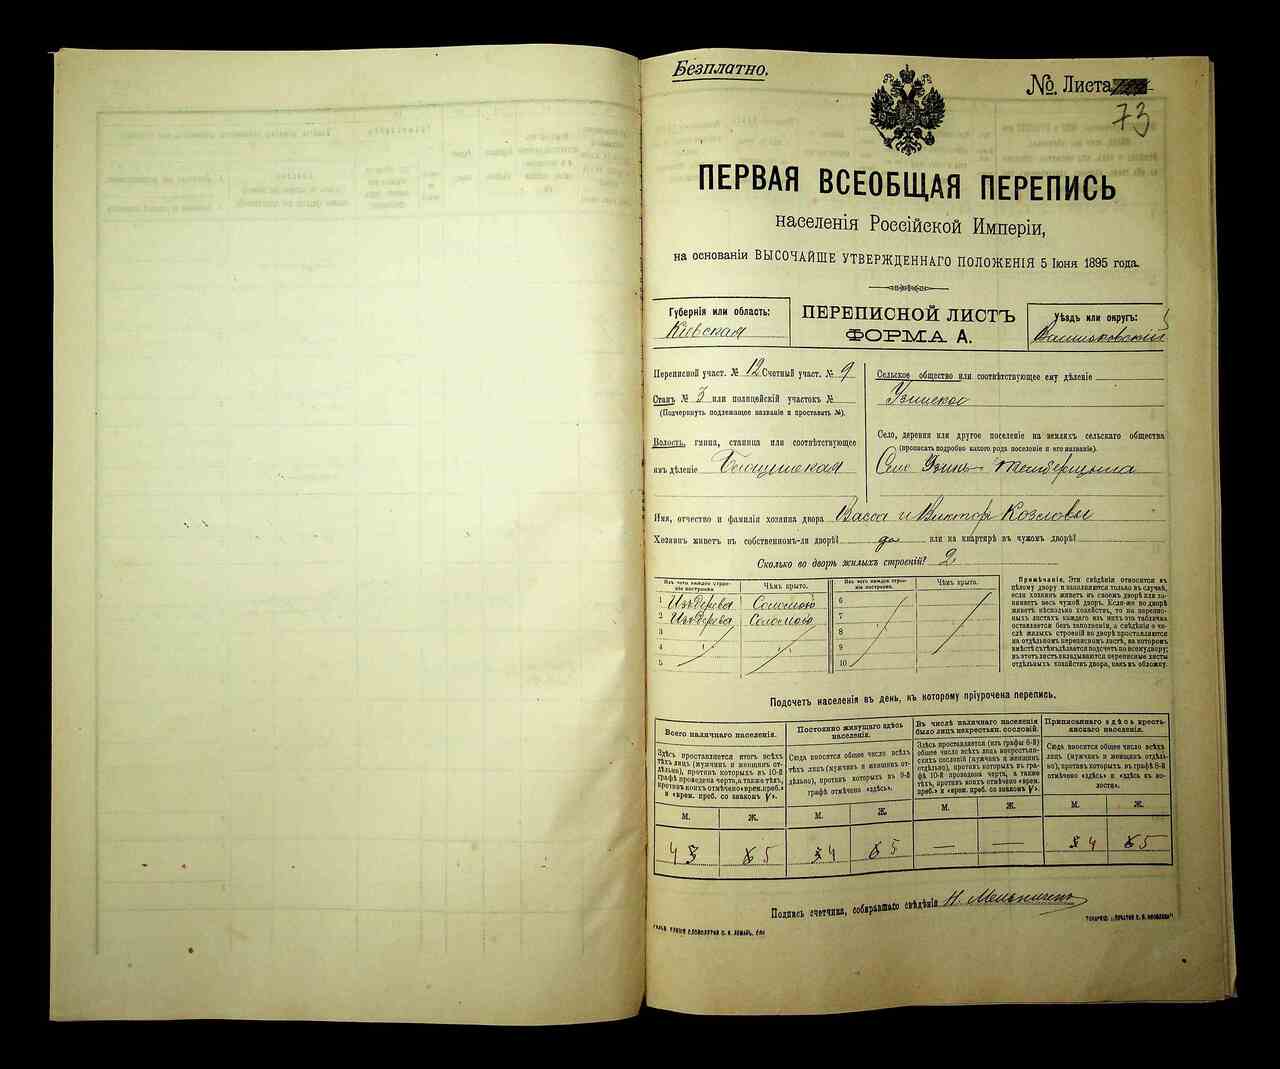 Безплатно.
№ Листа
73
ПЕРВАЯ ВСЕОБЩАЯ ПЕРЕПИСЬ
населенія Россійской Имперіи,
на основаніи ВЫСОЧАЙШЕ УТВЕРЖДЕННАГО ПОЛОЖЕНІЯ 5 Іюня 1895 года.
Губернія или область:
Кіевская
ПЕРЕПИСНОЙ ЛИСТЪ
ФОРМА А.
Уѣздъ или округъ:
Васильковскій
Переписной участ. № 12 Счетный участ. № 9
Станъ № 3 или полицейскій участокъ №
(Подчеркнуть подлежащее названіе и проставить №).
Волость, гмина, станица или соотвѣтствующее
имъ дѣленіе
Сельское общество или соотвѣтствующее ему дѣленіе
Узинское
Село, деревня или другое поселеніе на земляхъ сельскаго общества
(прописать подробно какого рода поселеніе и его названіе).
Село Узинь
Имя, отчество и фамилія хозяина двора Васса и Викторъ Козловы
Хозяинъ живетъ въ собственномъ-ли дворѣ? да или на квартирѣ въ чужомъ дворѣ?
Сколько во дворѣ жилыхъ строеній? 2
Изъ чего каждое строеніе построено. Чѣмъ крыто. Изъ чего каждое строеніе построено. Чѣмъ крыто.
1 Изъ дерева Соломою 6
2 Изъ дерева Соломою 7
3 8
4 9
5 10
Примѣчаніе. Эти свѣдѣнія относятся къ
цѣлому двору и заполняются только въ случаѣ,
если хозяинъ живетъ въ своемъ дворѣ или занимаетъ
весь чужой дворъ. Если-же во дворѣ
живетъ нѣсколько хозяйствъ, то на переписныхъ
листахъ каждаго изъ нихъ эта табличка
оставляется безъ заполненія, а свѣдѣнія о числѣ
жилыхъ строеній во дворѣ проставляются
на отдѣльномъ переписномъ листѣ, на которомъ
вмѣстѣ съ тѣмъ дѣлается подсчетъ по всему двору;
въ этотъ листъ вкладываются переписные листы
отдѣльныхъ хозяйствъ двора, какъ въ обложку.
Подсчетъ населенія въ день, къ которому пріурочена перепись.
Всего наличнаго населенія.
Здѣсь проставляется итогъ всѣхъ
тѣхъ лицъ (мужчинъ и женщинъ отдѣльно),
противъ которыхъ въ 10-й
графѣ проведена черта, а также тѣхъ,
противъ коихъ отмѣчено «врем. преб.»
и «врем. преб. со знакомъ V».
Постоянно живущаго здѣсь
населенія.
Сюда вносится общее число всѣхъ
тѣхъ лицъ (мужчинъ и женщинъ отдѣльно),
противъ которыхъ въ 9-й
графѣ отмѣчено «здѣсь».
Въ числѣ наличнаго населенія
было лицъ некрестьян. сословій.
Здѣсь проставляется (изъ графы 6-й)
общее число всѣхъ лицъ некрестьянскихъ
сословій (мужчинъ и женщинъ
отдѣльно), противъ которыхъ въ графѣ
10-й проведена черта, а также
тѣхъ, противъ коихъ отмѣчено «врем.
преб.» и «врем. преб. со знакомъ V».
Приписаннаго здѣсь крестьянскаго
населенія.
Сюда вносится общее число всѣхъ
лицъ (мужчинъ и женщинъ отдѣльно),
противъ которыхъ въ графѣ 8-й
отмѣчено «здѣсь» и «здѣсь въ волости».
М. Ж. М. Ж. М. Ж. М. Ж.
4 5 4 5 — — 4 5
Подпись счетчика, собиравшаго свѣдѣнія